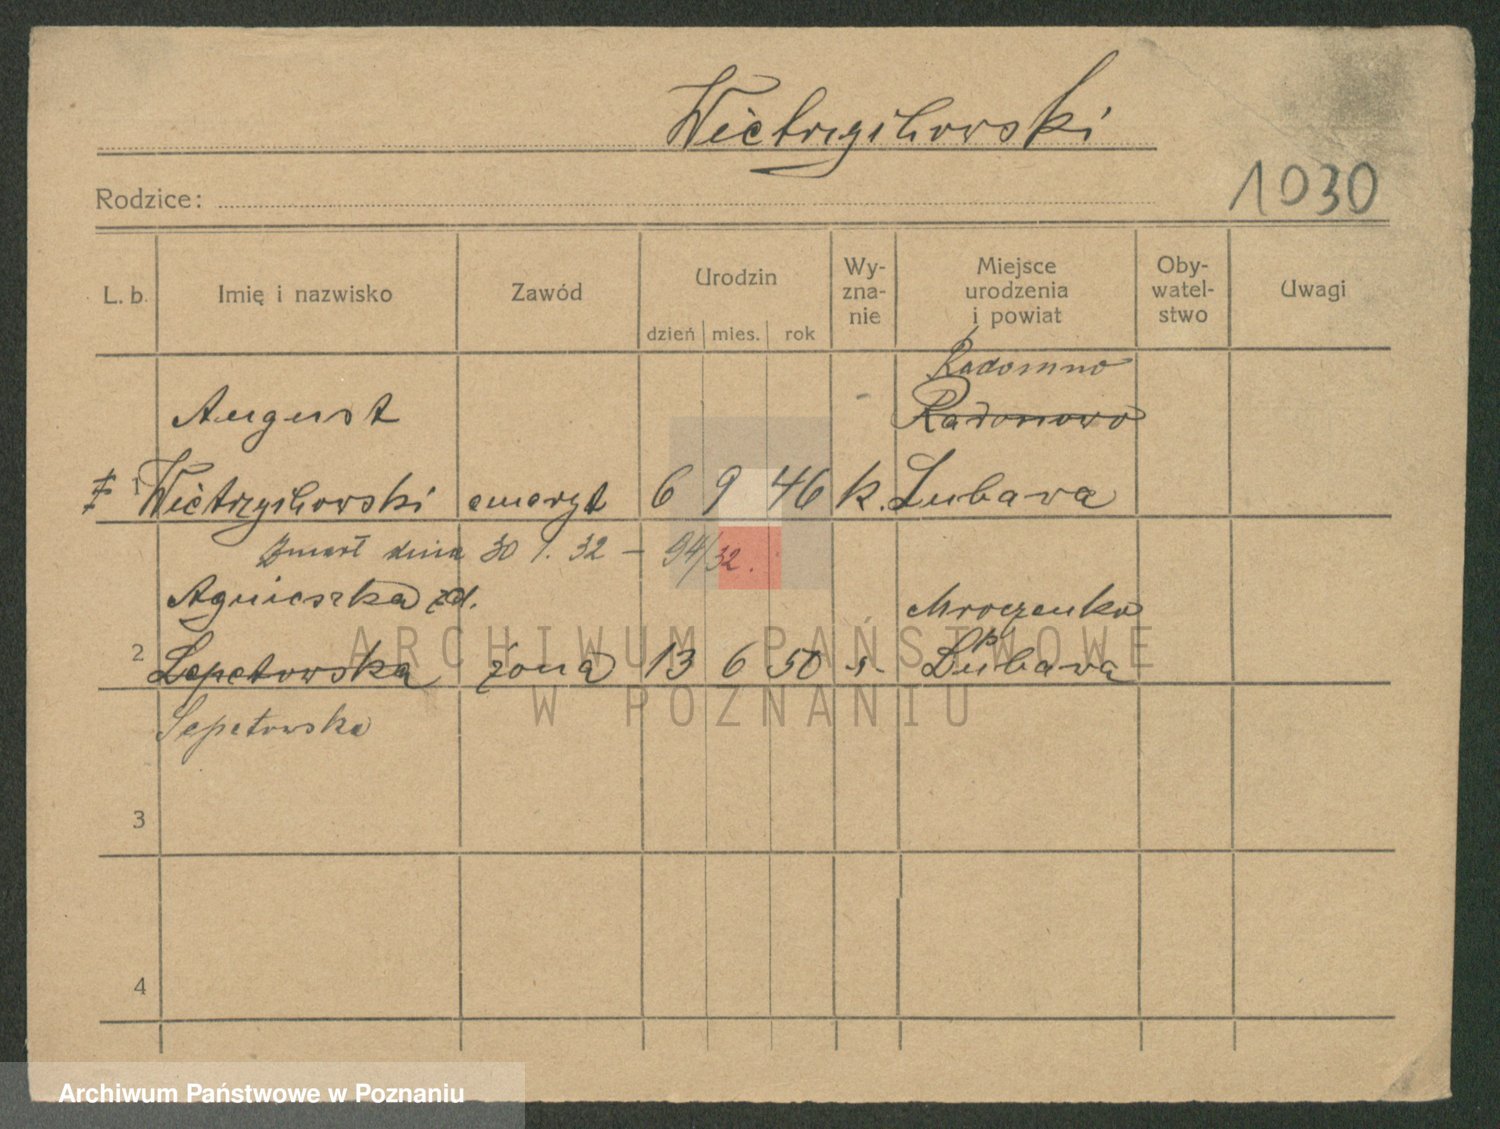 Wietrzychowski
Rodzice:
1030
L. b. Imię i nazwisko Zawód Urodzin dzień mies. rok Wy-zna-nie Miejsce urodzenia i powiat Oby-watel-stwo Uwagi
Radomno
August Radomowo
1 Wietrzychowski emeryt 6 9 46 k. Lubawa
Zmarł dnia 30 1. 32 – 94/32.
Agnieszka zd. Mroczenko
2 Lepetowska żona 13 6 50 s. Lubawa
Sepetowska
3
4
ARCHIWUM PAŃSTWOWE
W POZNANIU
Archiwum Państwowe w Poznaniu